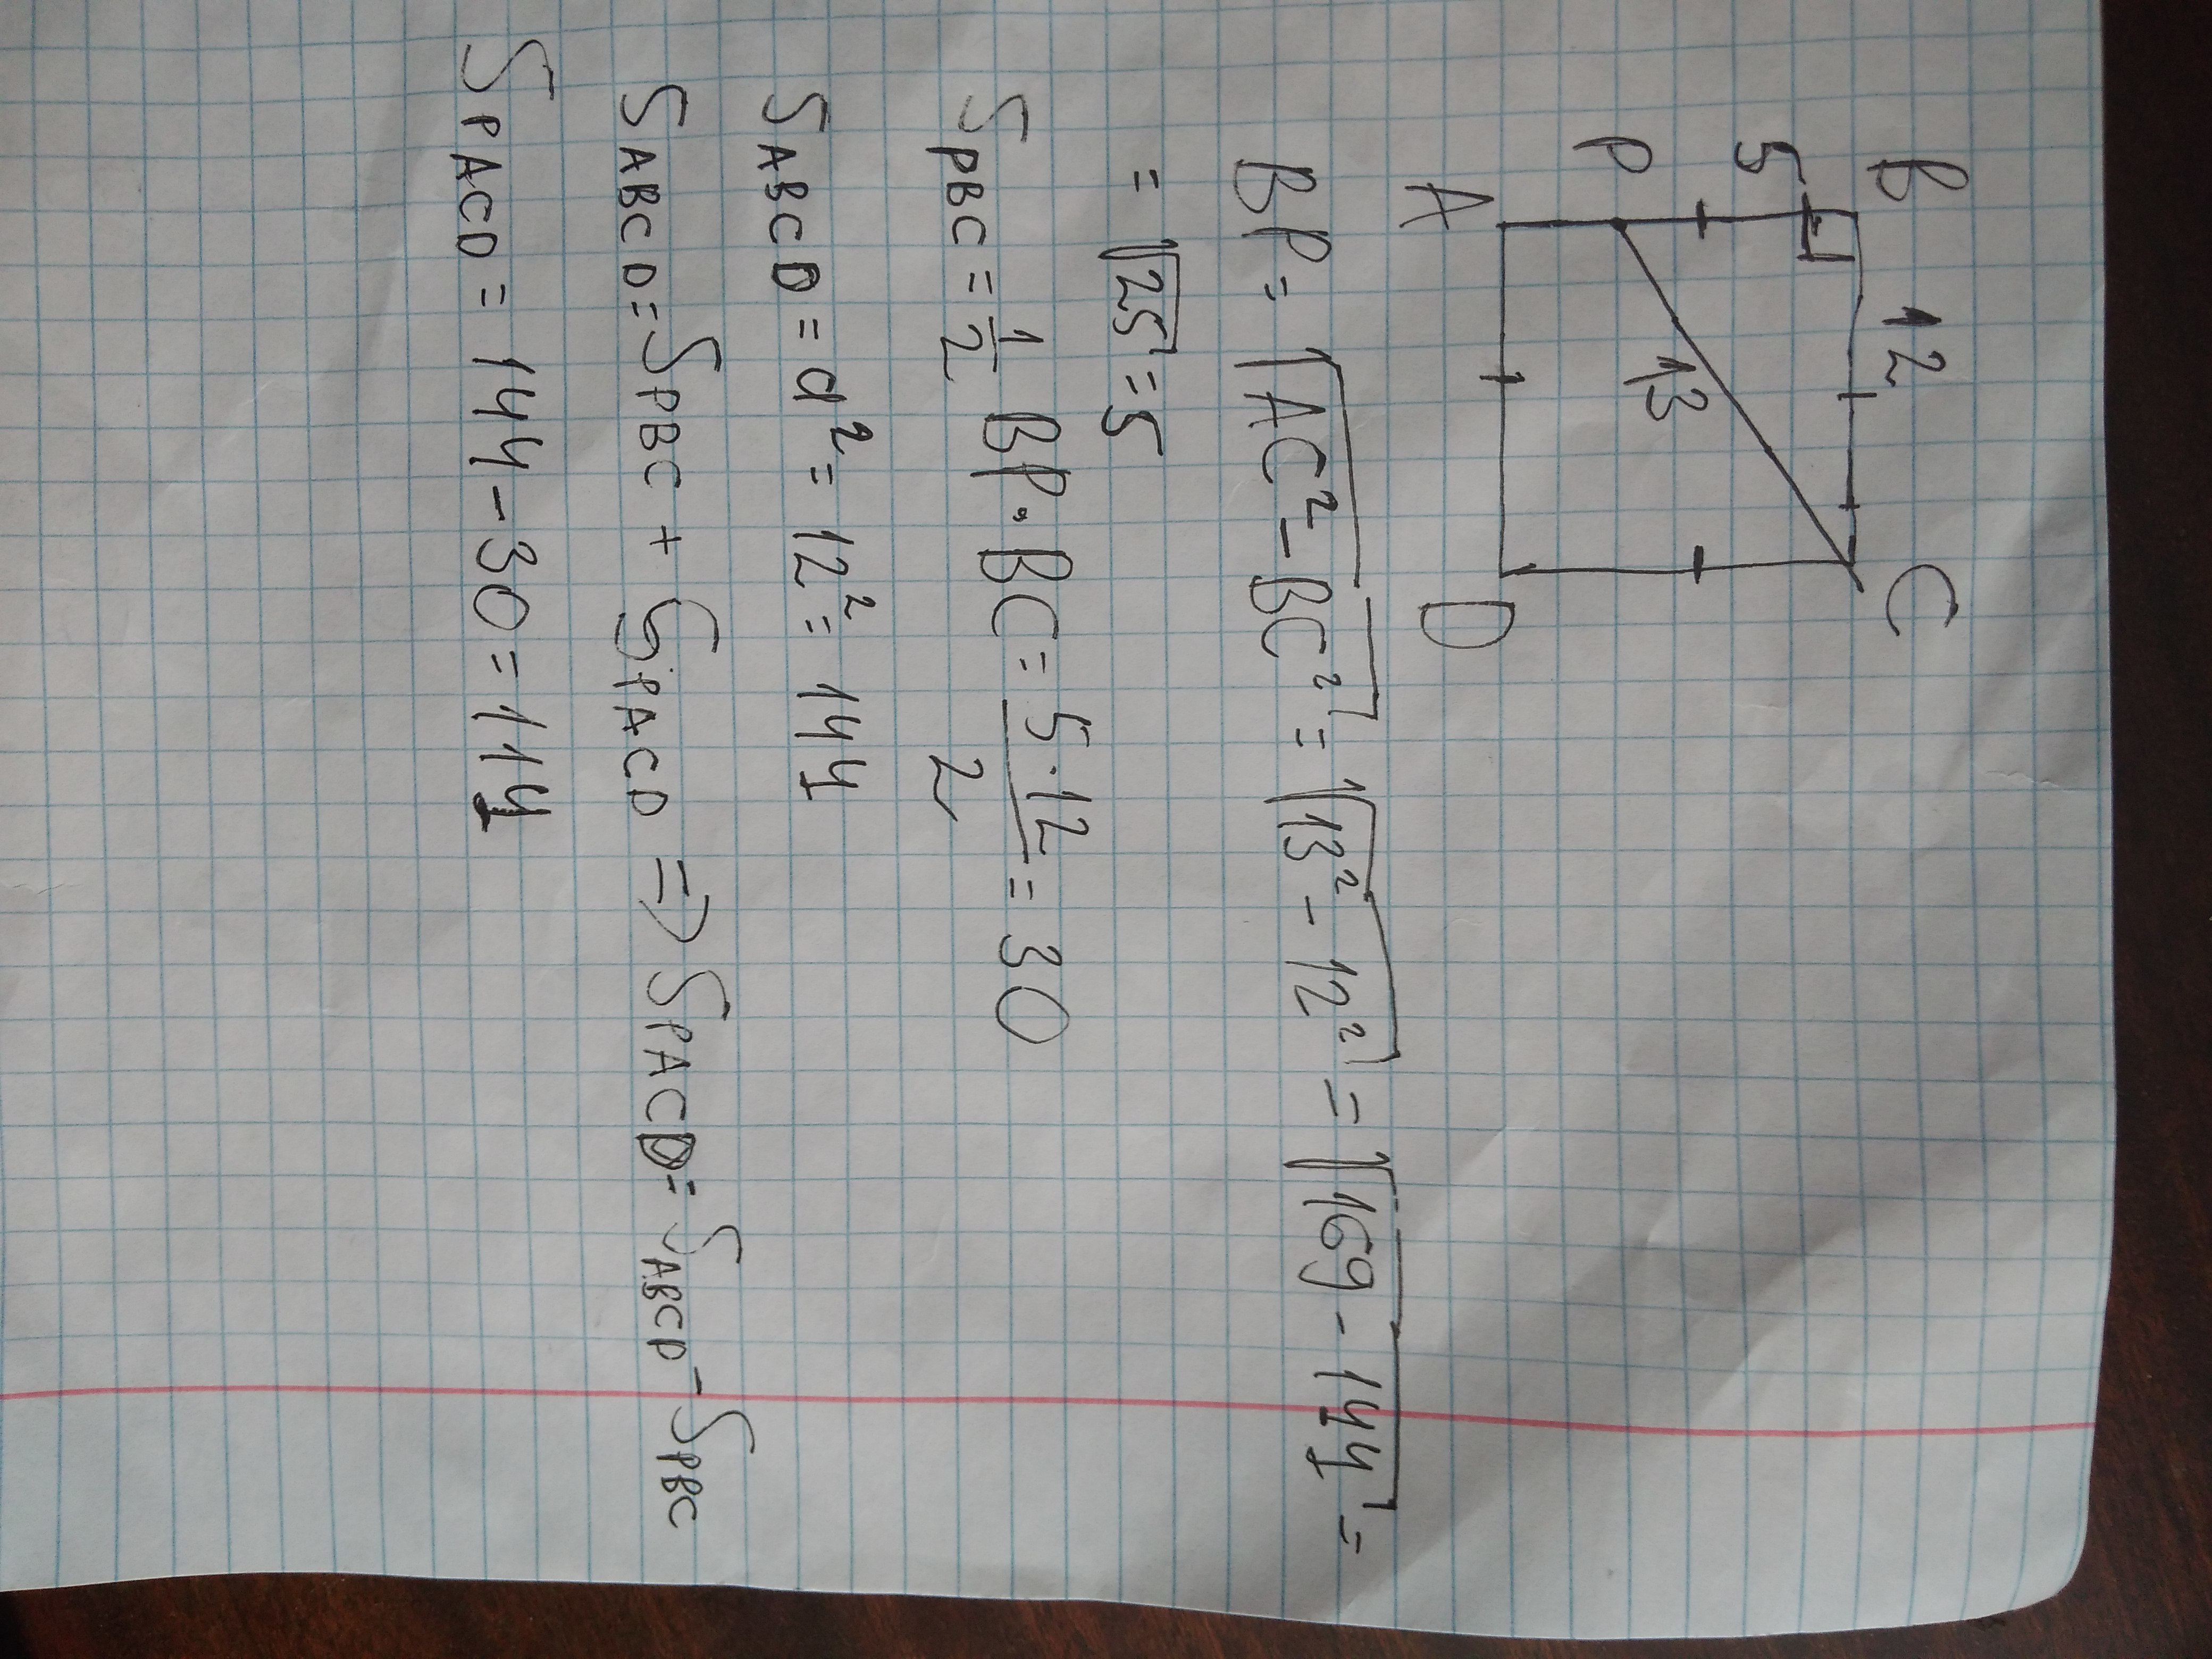 B 12 C
5
13
P
A D
BP = √AC² - BC² = √13² - 12² = √169 - 144 =
= √25 = 5
S PBC = 1/2 BP · BC = 5·12/2 = 30
S ABCD = a² = 12² = 144
S ABCD = S PBC + S PACD ⇒ S PACD = S ABCD - S PBC
S PACD = 144 - 30 = 114